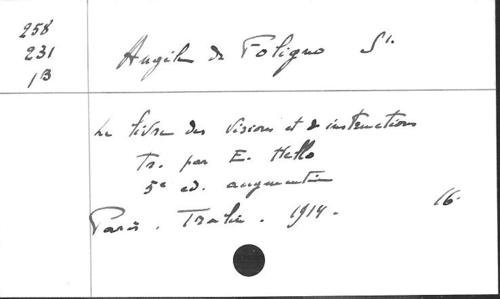 258
231
1B
Angèle de Foligno St.
Le livre des visions et d instructions
Tr. par E. Hello
5e ed. augmentée
Paris. Tralin. 1914.
16.